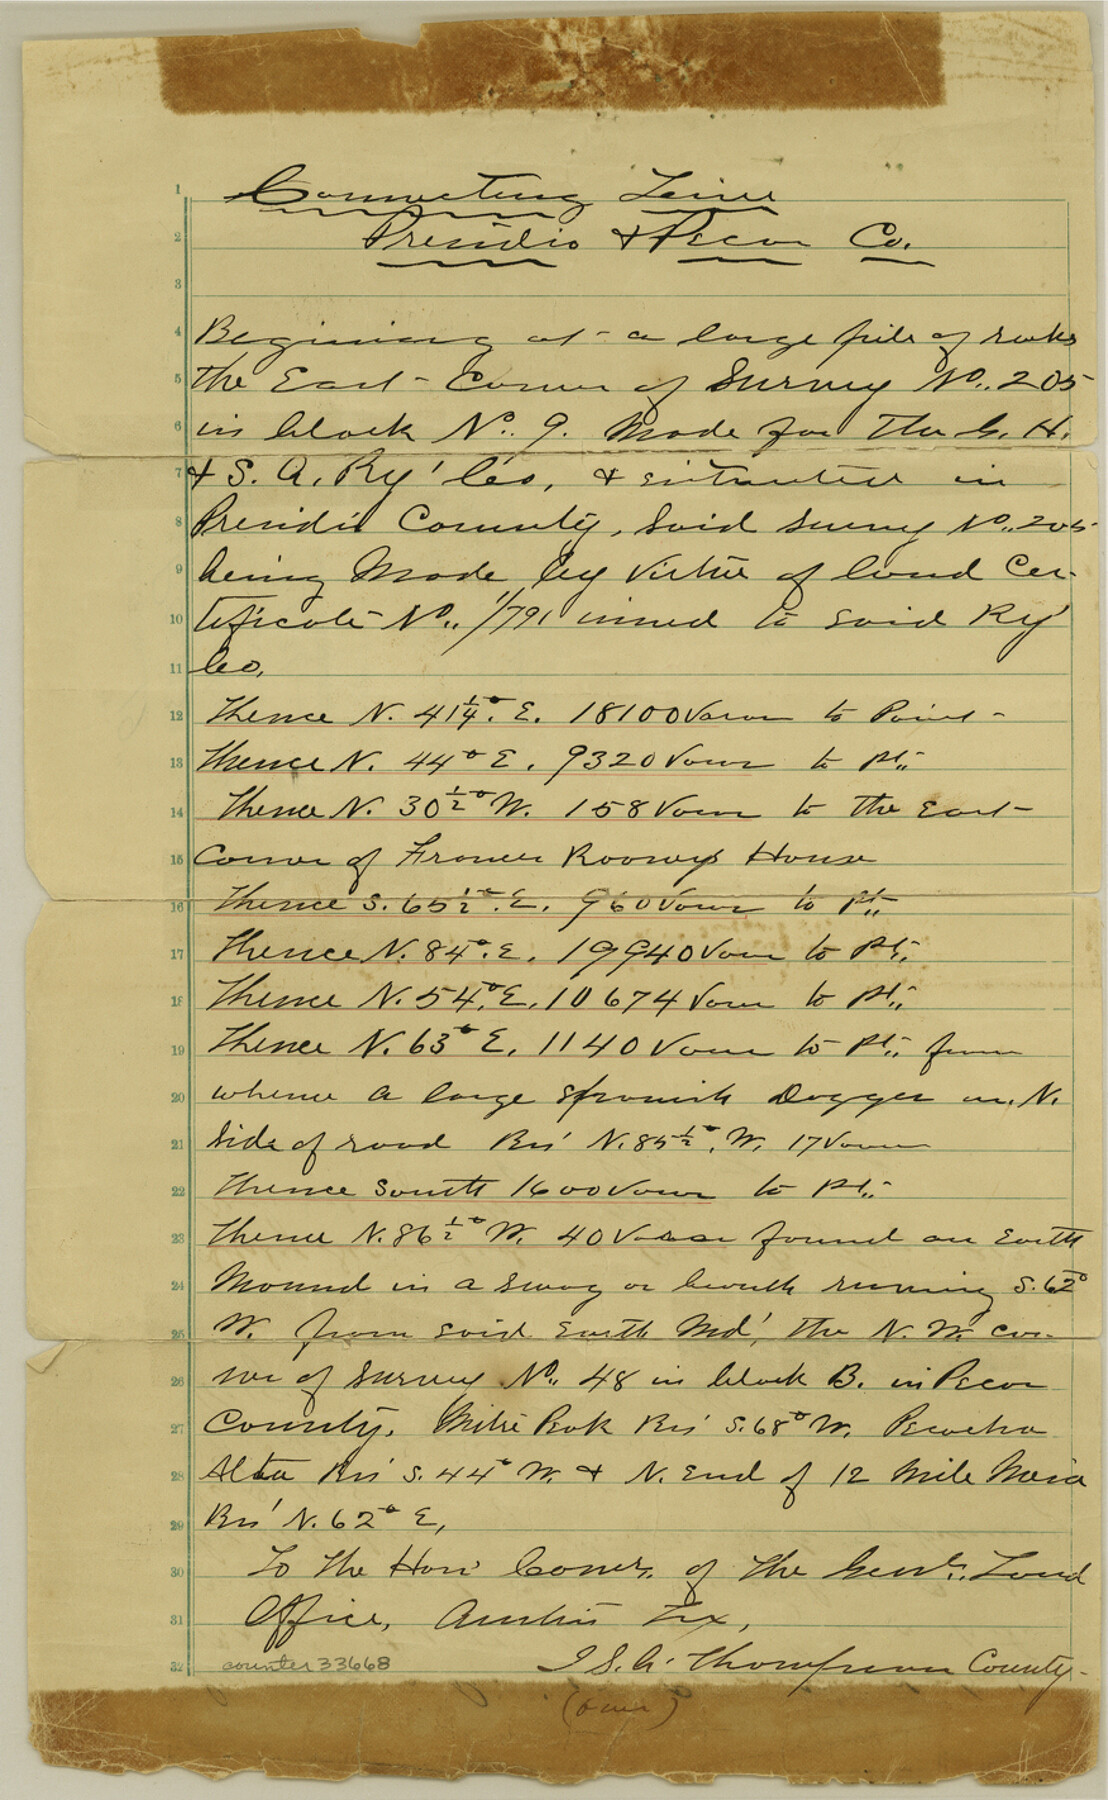 Connecting Line
Presidio & Pecos Co.
1
2
3
4
5
6
7
8
9
10
11
12
13
14
15
16
17
18
19
20
21
22
23
24
25
26
27
28
29
30
31
32
Beginning at a large pile of rocks
the East Corner of Survey No. 205
in block No. 9. Made for the G. H.
& S. A. Ry' Co, & situated in
Presidio County, Said Survey No. 205
being Made by virtue of land Cer-
tificate No. 1/791 issued to said Ry'
Co.
Thence N. 41 1/4° E. 18100 Varas to Point
Thence N. 44° E. 9320 Varas to pt.
Thence N. 30 1/2° W. 158 Varas to the East
Corner of Francis Rooneys House
Thence S. 65 1/2° E. 960 Varas to pt.
Thence N. 84° E. 19940 Varas to Pt.
Thence N. 54° E. 10674 Varas to pt.
Thence N. 63° E. 1140 Varas to pt. from
whence a large Spanish Dagger on N.
Side of road Brs' N. 85 1/2° W. 17 Varas
Thence South 1600 Varas to pt.
Thence N. 86 1/2° W. 40 Varas found an Earth
Mound in a swag or running S. 62°
W. from said Earth Md', the N. W. cor-
ner of Survey No. 48 in block B. in Pecos
County. Mitre Peak Brs' S. 68° W.
Alta Brs' S. 44° W. & N. End of 12 Mile Mesa
Brs' N. 62° E,
To the Hon' Comrs. of the Genl. Land
Office, Austin Tex,
I S. A. Thompson County
(over)
counter 33668